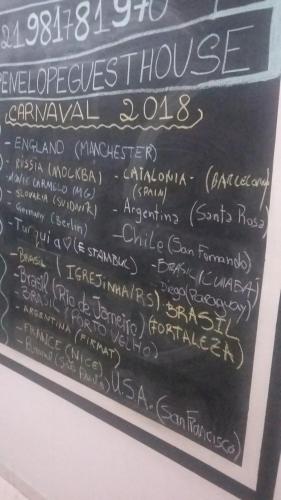 21981781970
PENELOPEGUESTHOUSE
CARNAVAL 2018
- ENGLAND (MANCHESTER)
- RÚSSIA (MOCKBA)
- MONTE CARMELO (MG)
- SLOVAKIA (SVIDNÍK)
- Germany (Berlin)
- Turquia (ESTAMBUL)
- BRASIL (IGREJINHA/RS)
- Brasil (Rio de Janeiro)
- BRASIL (PORTO VELHO)
- ARGENTINA (FIRMAT)
- FRANCE (NICE)
- CATALONIA - (BARCELONA)
(SPAIN)
- Argentina (Santa Rosa)
- Chile (San Fernando)
- BRASIL
Diego (Paraguay)
BRASIL
(FORTALEZA)
U.S.A. (San Francisco)